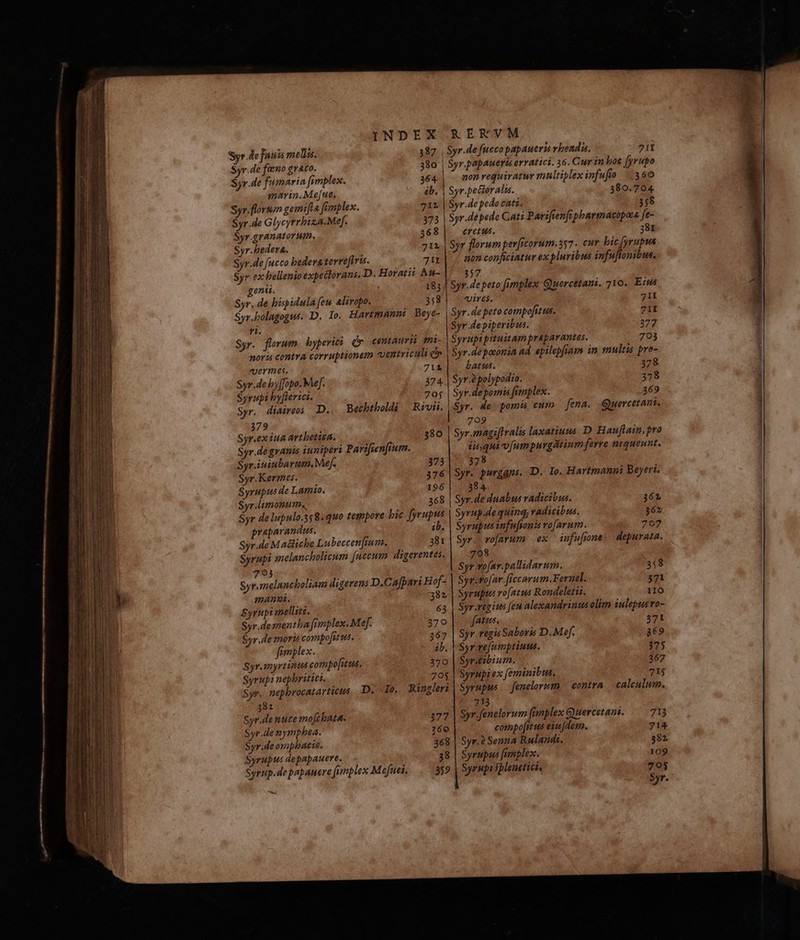 INDEX RERVM
Syr.de fauis mellis. 387
Syr.de fœno græco. 380
Syr.de fumaria simplex. 364
marin.Mesue. ib.
Syr.florum genistæ simplex. 712
Syr.de Glycyrrhiza.Mes. 373
Syr.granatorum. 368
Syr.hedera. 712
Syr.de succo hederæ terrestris. 711
Syr ex hellenio expectorans. D. Horatii Au-
genii. 183
Syr. de hispidula seu aliropo. 358
Syr.holagogus. D. Io. Hartmanni Beye-
ri.
Syr. florum hyperici & centaurii mi-
noris contra corruptionem ventriculi &
vermes. 712
Syr.de hyssopo.Mes. 374
Syrupi hysterici. 705
Syr. diaireos D. Bechtholdi Rivii.
379
Syr.ex iua arthetica. 380
Syr.de granis iuniperi Parisiensium.
Syr.iuiubarum.Mes. 373
Syr.Kermes. 376
Syrupus de Lamio. 196
Syr.limonum. 368
Syr de lupulo.358.quo tempore hic syrupus
præparandus. ib.
Syr.de Masliche Lubeccensium. 381
Syrupi melancholicum succum digerentes.
703
Syr.melancholiam digerens D.Caspari Hof-
manni. 382
Syrupi melliti. 63
Syr.de mentha simplex.Mes. 370
Syr.de moris compositus. 367
simplex. ib.
Syr.myrtinus compositus. 370
Syrupi nephritici. 705
Syr. nephrocatarticus D. Io. Ringleri
382
Syr.de nuce moschata. 377
Syr.de nymphea. 360
Syr.de omphacis. 368
Syrupus de papauere. 38
Syrup.de papauere simplex Mesuei. 359
Syr.de succo papaueris rhoeadis. 711
Syr.papaueris erratici. 36. Cur in hoc syrupo
non requiratur multiplex infusio 360
Syr.pectoralis. 380.704
Syr.de pede cati. 358
Syr.de pede Cati Parisiensi pharmacopœa se-
cretus. 381
Syr florum persicorum.357. cur hic syrupus
non conficiatur ex pluribus infusionibus.
357
Syr.de peto simplex Quercetani. 710. Eius
vires. 711
Syr.de peto compositus. 711
Syr.de piperibus. 377
Syrupi pituitam præparantes. 703
Syr.de pœonia ad epilepsiam in multis pro-
batus. 378
Syr.è polypodio. 378
Syr.de pomis simplex. 369
Syr. de pomis cum sena. Quercetani.
709
Syr.magistralis laxatiuus D Hauslain, pro
iis,qui vsum purgatium ferre nequeunt.
378
Syr. purgans. D. Io. Hartmanni Beyeri.
384
Syr.de duabus radicibus. 362
Syrup.de quinq; radicibus. 362
Syrupus infusionis rosarum. 707
Syr. rosarum ex infusione depurata.
708
Syr rosar.pallidarum. 358
Syr.rosar.siccarum.Fernel. 371
Syrupus rosatus Rondeletii. 110
Syr.regius seu alexandrinus olim iulepus ro-
satus. 371
Syr regis Saboris D.Mes. 369
Syr resumptiuus. 375
Syr.ribium. 367
Syrupi ex seminibus. 715
Syrupus senelorum contra calculum.
713
Syr.senelorum simplex Quercetani. 713
compositus eiusdem. 714
Syr.è Senna Rulandi. 382
Syrupus simplex. 109
Syrupi splenetici. 705
Syr.